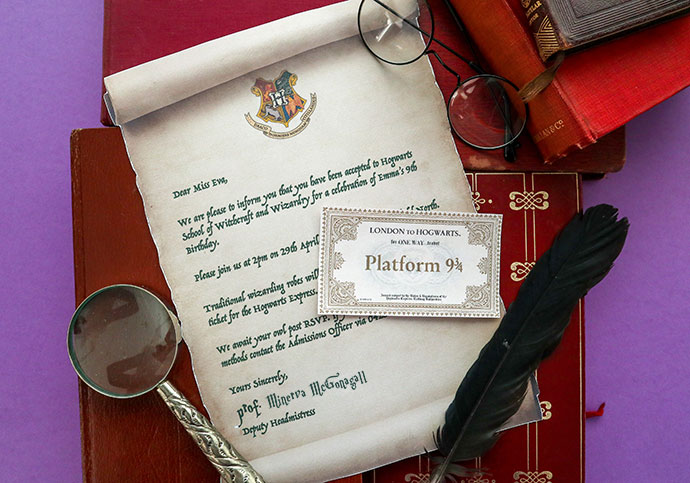 Dear Miss Eva,
We are please to inform you that you have been accepted to Hogwarts
School of Witchcraft and Wizardry for a celebration of Emma's 9th
Birthday.
Please join us at 2pm on 29th April
North.
Traditional wizarding robes
ticket for the Hogwarts Express.
We await your owl post RSVP.
methods contact the Admissions Officer via
Yours Sincerely,
prof. Minerva McGonagall
Deputy Headmistress
LONDON TO HOGWARTS.
for ONE WAY travel
Platform 9¾
& Co